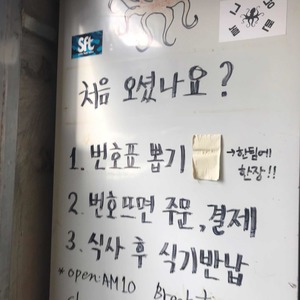 Sft
처음 오셨나요?
1. 번호표 뽑기 → 한팀에
한장!!
2. 번호뜨면 주문, 결제
3. 식사 후 식기반납
*open:AM10